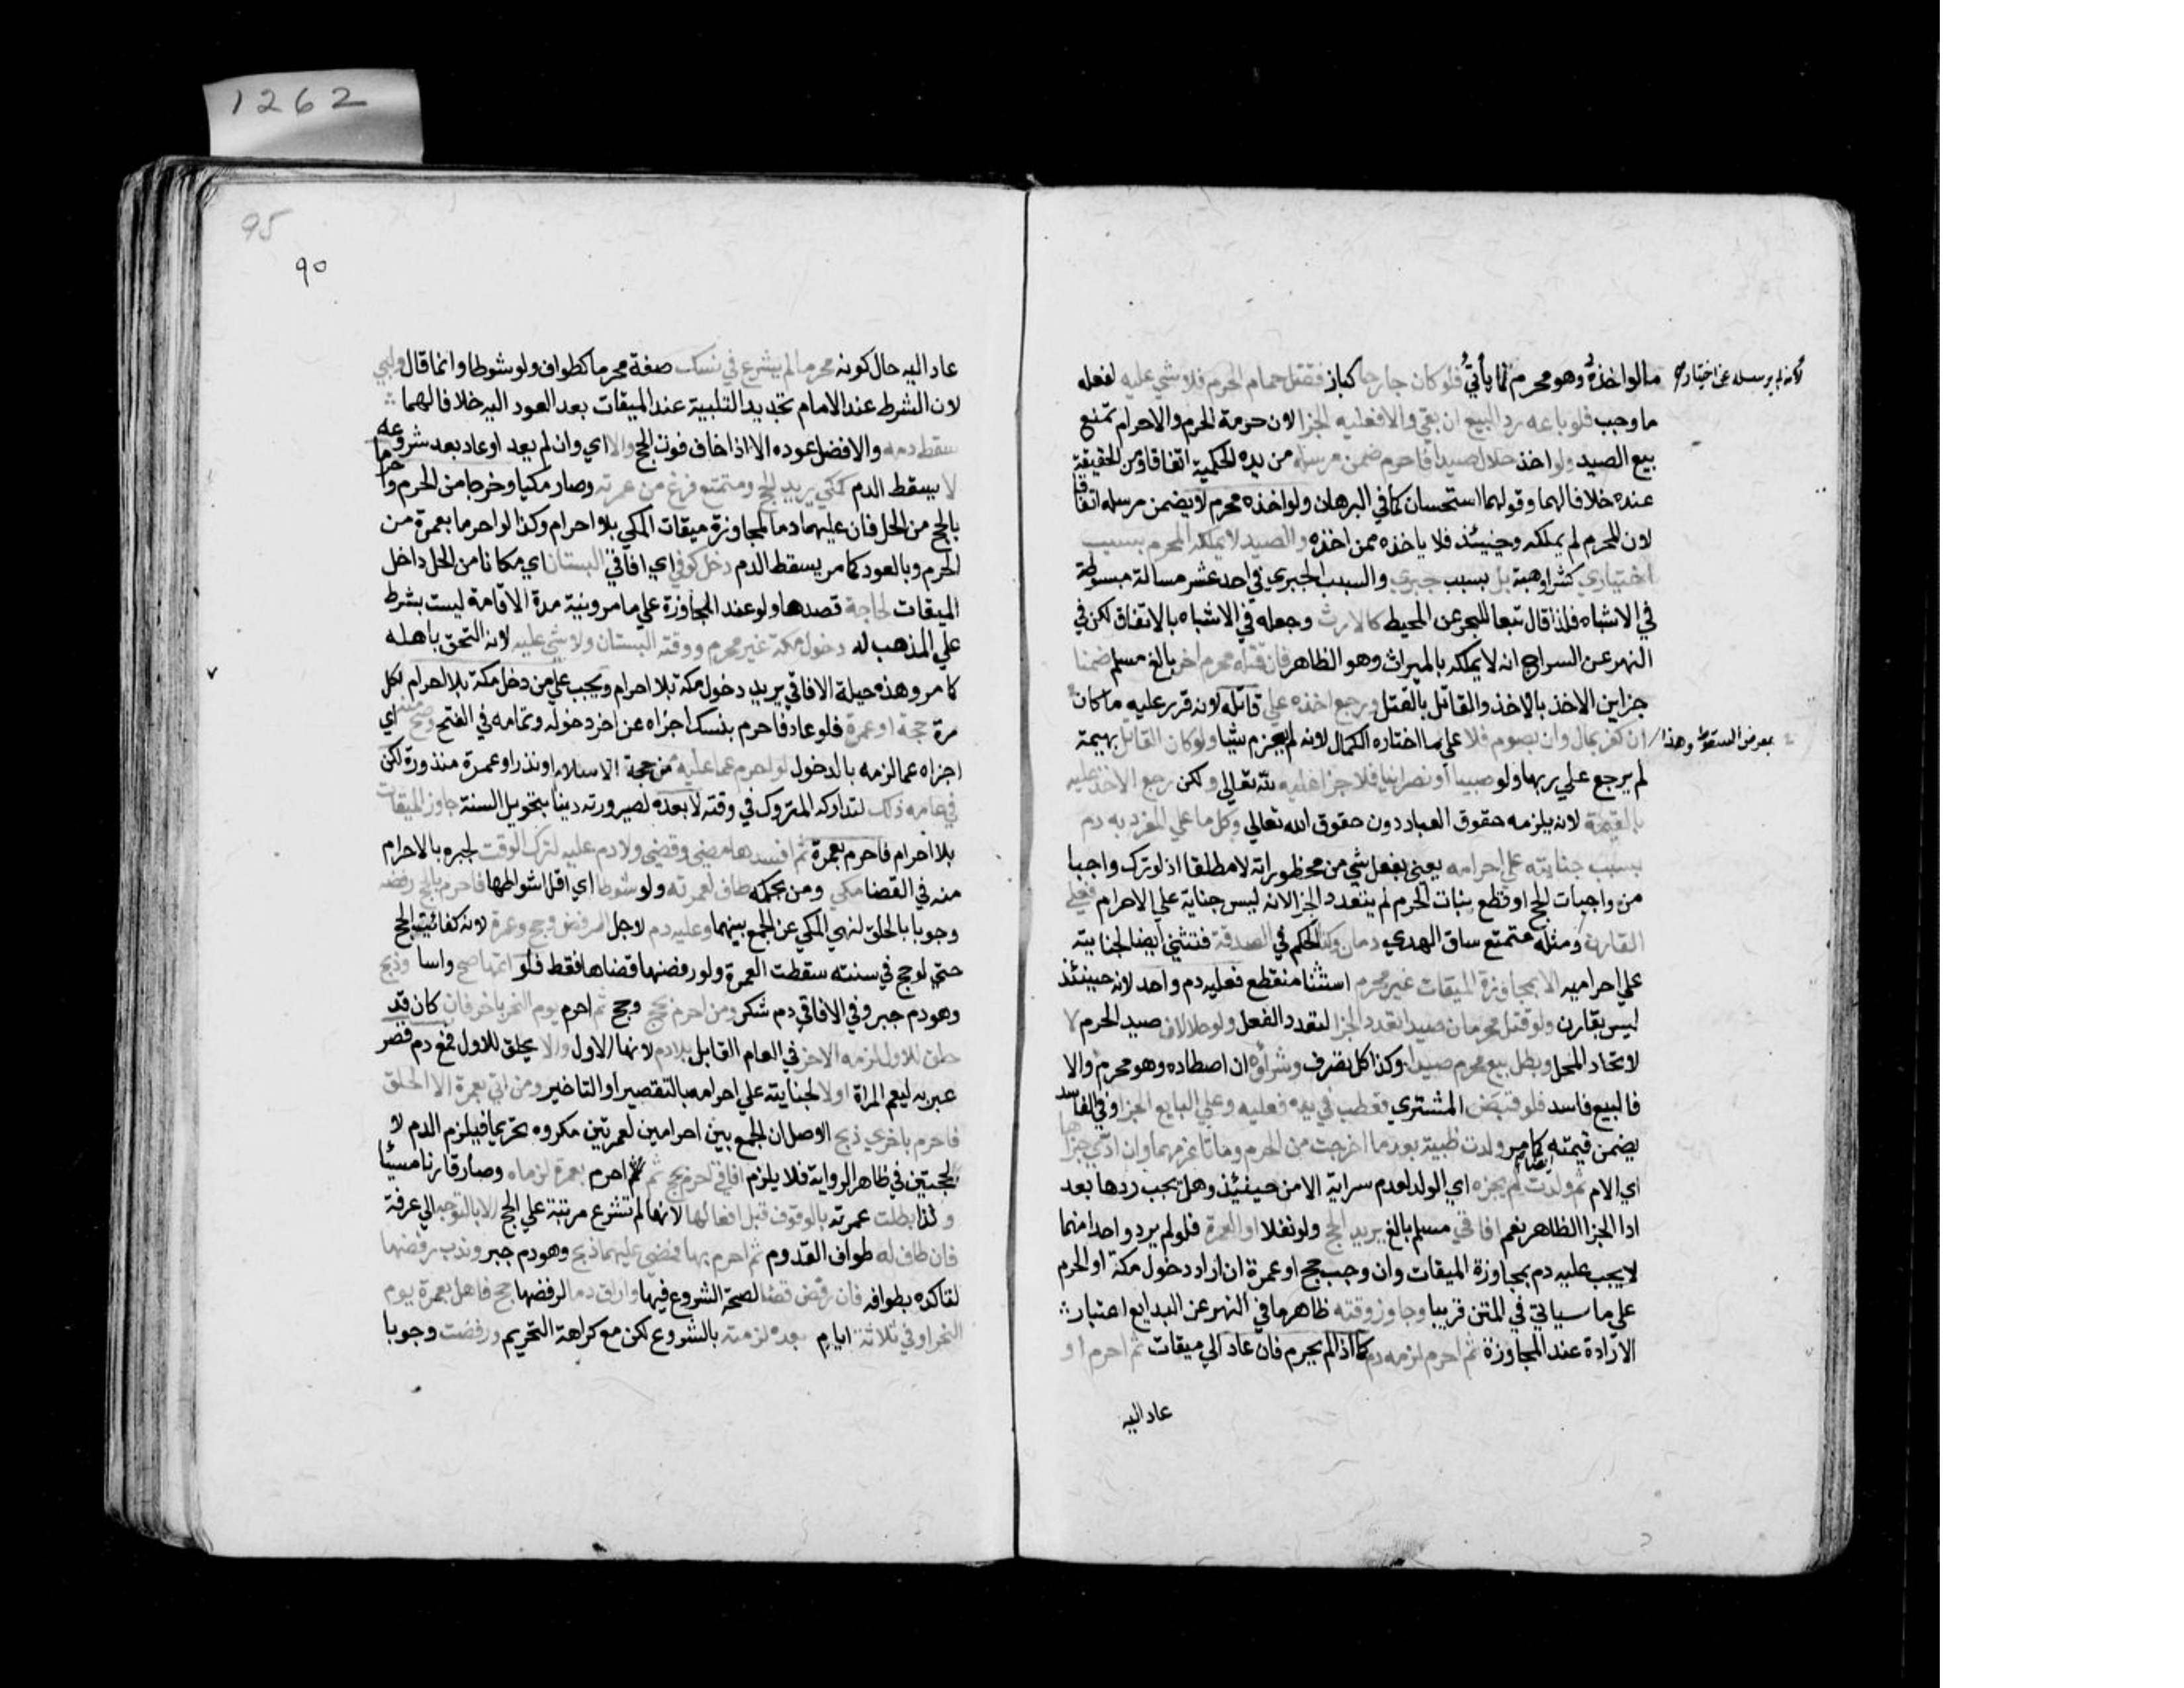 1262
مالو اخذه وهو محرم لما يأتي فلو كان جارحا كباز فقتل حمام الحرم فلا شي عليه لفعله
لانه لم يرسله عن اختياره
ما وجب فلو باعه رد البيع ان بقي والا فعليه الجزا لان حرمة الحرم والاحرام تمنع
بيع الصيد ولو اخذ حلال صيدا فاحرم ضمن مرسله من يده الحكمية اتفاقا ومن الحقيقية
عنده خلافا لهما وقولهما استحسان كما في البرهان ولو اخذه محرم لا يضمن مرسله اتفاقا
لان المحرم لم يملكه وحينئذ فلا ياخذه ممن اخذه والصيد لا يملكه المحرم بسبب
اختياري كشرا وهبة بل بسبب جبري والسبب الجبري في احد عشر مسالة مبسوطة
في الاشباه فلذا قال تبعا للبحر عن المحيط كالارث وجعله في الاشباه بالاتفاق لكن في
النهر عن السراج انه لا يملكه بالميراث وهو الظاهر فان قتله محرم اخر بالغ مسلم ضمنا
جزاين الاخذ بالاخذ والقاتل بالقتل ورجع اخذه علي قاتله لانه قرر عليه ما كان
بمعرض السقوط وهذا
ان كفر بمال وان بصوم فلا علي ما اختاره الكمال لانه لم يغرم شيا ولو كان القاتل بهيمة
لم يرجع علي ربها ولو صبيا او نصرانيا فلا جزا عليه لله تعالي ولكن رجع الاخذ عليه
بالقيمة لانه يلزمه حقوق العباد دون حقوق الله تعالي وكل ما علي المفرد به دم
بسبب جنايته علي احرامه يعني بفعل شي من محظوراته لا مطلقا اذ لو ترك واجبا
من واجبات الحج او قطع نبات الحرم لم يتعدد الجزا لانه ليس جناية علي الاحرام فعلي
القارن ومثله متمتع ساق الهدي دمان وكذا الحكم في الصدقة فتثني ايضا لجنايته
علي احراميه الا بمجاوزة الميقات غير محرم استثنا منقطع فعليه دم واحد لانه حينئذ
ليس بقارن ولو قتل محرمان صيدا تعدد الجزا لتعدد الفعل ولو حلالان صيد الحرم لا
لاتحاد المحل وبطل بيع محرم صيدا وكذا كل تصرف وشراؤه ان اصطاده وهو محرم والا
فالبيع فاسد فلو قبض المشتري فعطب في يده فعليه وعلي البايع الجزا وفي الفاسد
يضمن قيمته ايضا كما مر ولدت ظبية بعد ما اخرجت من الحرم وماتا غرمهما وان ادي جزاها
اي الام ثم ولدت لم يجزه اي الولد لعدم سراية الامن حينئذ وهل يجب ردها بعد
ادا الجزا الظاهر نعم افاقي مسلم بالغ يريد الحج ولو نفلا او العمرة فلو لم يرد واحدا منهما
لا يجب عليه دم بمجاوزة الميقات وان وجب حج او عمرة ان اراد دخول مكة او الحرم
علي ما سياتي في المتن قريبا وجاوز وقته ظاهر ما في النهر عن البدايع اعتبار
الارادة عند المجاوزة ثم احرم لزمه دم كما اذا لم يحرم فان عاد الي ميقات ثم احرم او
عاد اليه
95
٩٥
عاد اليه حال كونه محرما لم يشرع في نسك صفة محرما كطواف ولو شوطا وانما قال ولبي
لان الشرط عند الامام تجديد التلبية عند الميقات بعد العود اليه خلافا لهما
سقط دمه والافضل عوده الا اذا خاف فوت الحج والا اي وان لم يعد او عاد بعد شروعه
لا يسقط الدم كمكي يريد الحج ومتمتع فرغ من عمرته وصار مكيا وخرجا من الحرم واحرما
بالحج من الحل فان عليهما دما لمجاوزة ميقات المكي بلا احرام وكذا لو احرما بعمرة من
الحرم وبالعود كما مر يسقط الدم دخل كوفي اي افاقي البستان اي مكانا من الحل داخل
الميقات لحاجة قصدها ولو عند المجاوزة علي ما مر ونية مدة الاقامة ليست بشرط
علي المذهب له دخول مكة غير محرم ووقته البستان ولا شي عليه لانه التحق باهله
كما مر وهذه حيلة الافاقي يريد دخول مكة بلا احرام ويجب علي من دخل مكة بلا احرام لكل
مرة حجة او عمرة فلو عاد فاحرم بنسك اجزاه عن اخر دخوله وتمامه في الفتح وصح منه اي
اجزاه عما لزمه بالدخول لو احرم عما عليه من حجة الاسلام او نذر او عمرة منذورة لكن
في عامه ذلك لتداركه المتروك في وقته لا بعده لصيرورته دينا بتحويل السنة جاوز الميقات
بلا احرام فاحرم بعمرة ثم افسدها مضي وقضي ولا دم عليه لترك الوقت لجبره بالاحرام
منه في القضا مكي ومن بحكمه طاف لعمرته ولو شوطا اي اقل اشواطها فاحرم بالحج رفضه
وجوبا بالحلق لنهي المكي عن الجمع بينهما وعليه دم لاجل الرفض وحج وعمرة لانه كفائت الحج
حتي لو حج في سنته سقطت العمرة ولو رفضها قضاها فقط فلو اتمها صح واسا وذبح
وهو دم جبر وفي الافاقي دم شكر ومن احرم بحج وحج ثم احرم يوم النحر باخر فان كان قد
حلق للاول لزمه الاخر في العام القابل بلا دم لانتها الاول والا يحلق للاول فمع دم قصر
عبر به ليعم المراة او لا لجنايته علي احرامه بالتقصير او التاخير ومن اتي بعمرة الا الحلق
فاحرم باخري ذبح الاصل ان الجمع بين احرامين لعمرتين مكروه تحريما فيلزم الدم لا
لحجتين في ظاهر الرواية فلا يلزم افاقي احرم بحج ثم احرم بعمرة لزماه وصار قارنا مسيئا
ولذا بطلت عمرته بالوقوف قبل افعالها لانها لم تشرع مرتبة علي الحج لا بالتوجه الي عرفة
فان طاف له طواف القدوم ثم احرم بها فمضي عليهما ذبح وهو دم جبر وندب رفضها
لتاكده بطوافه فان رفض قضا لصحة الشروع فيها واراق دما لرفضها حج فاهل بعمرة يوم
النحر او في ثلاثة ايام بعده لزمته بالشروع لكن مع كراهة التحريم ورفضت وجوبا